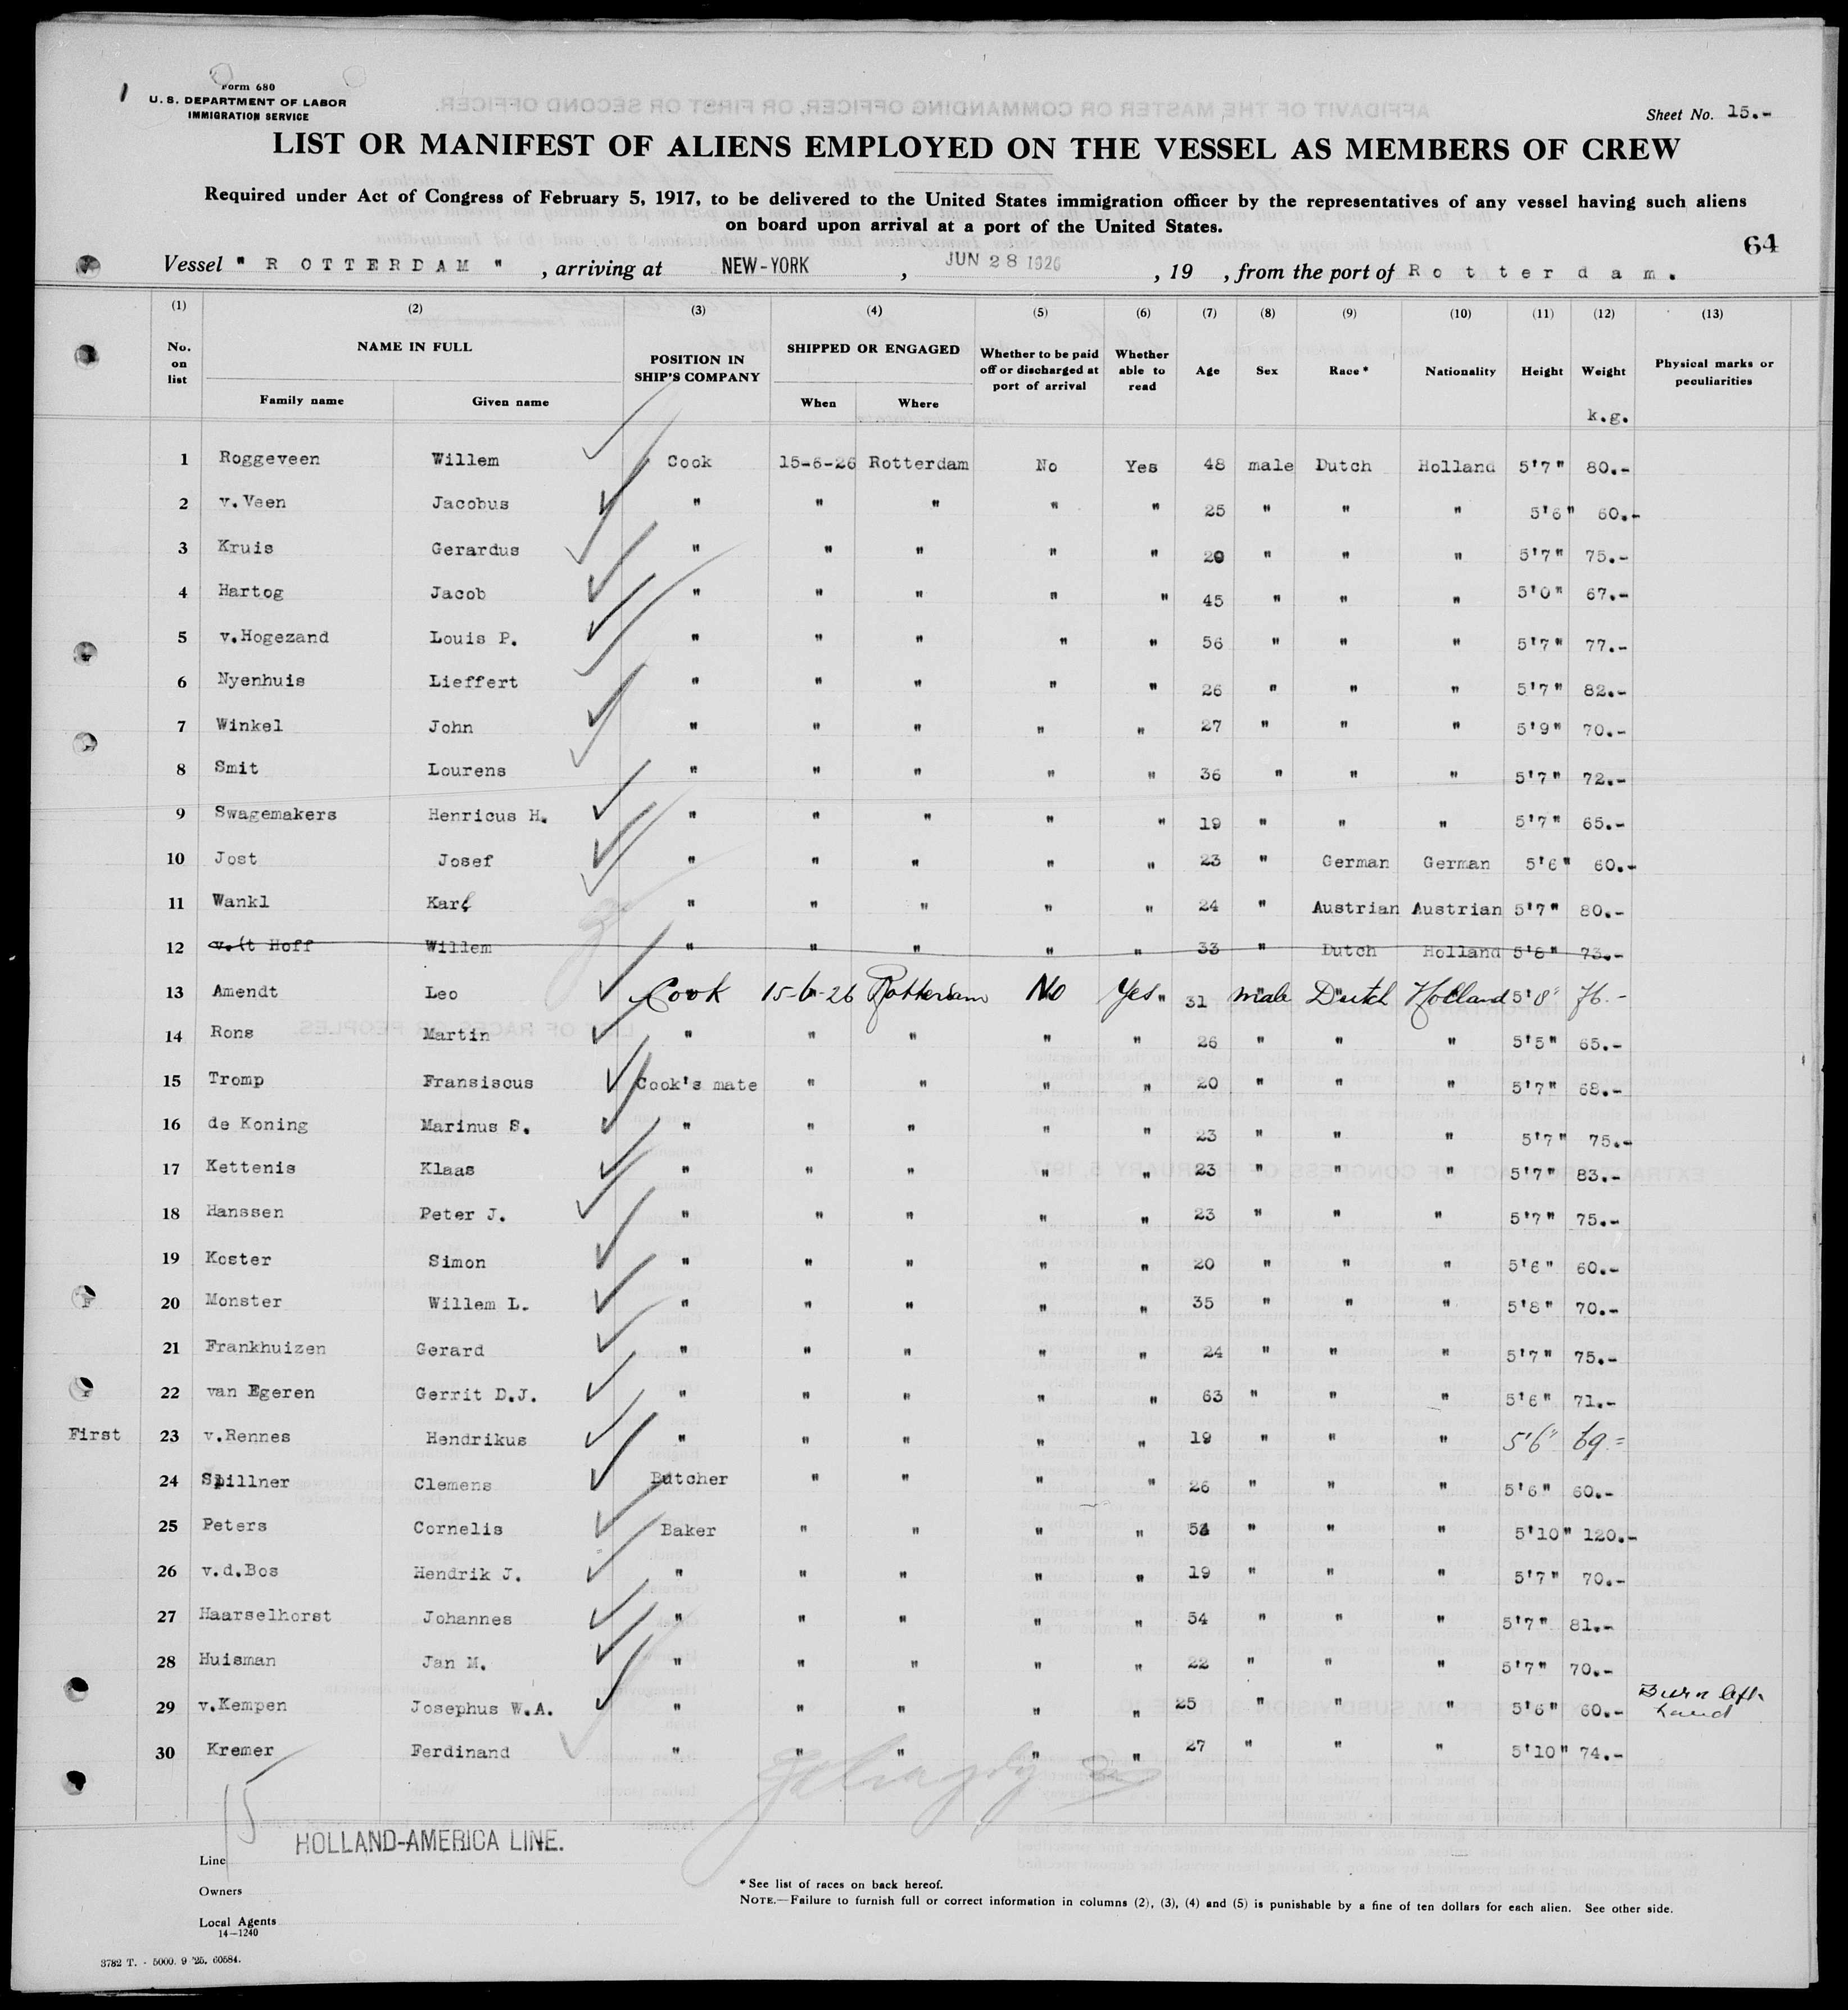 Form 680
U. S. DEPARTMENT OF LABOR
IMMIGRATION SERVICE
Sheet No. 15.-
LIST OR MANIFEST OF ALIENS EMPLOYED ON THE VESSEL AS MEMBERS OF CREW
Required under Act of Congress of February 5, 1917, to be delivered to the United States immigration officer by the representatives of any vessel having such aliens
on board upon arrival at a port of the United States.
64
Vessel " R O T T E R D A M " , arriving at NEW-YORK , JUN 28 1926 , 19 , from the port of R o t t e r d a m .
(1) (2) (3) (4) (5) (6) (7) (8) (9) (10) (11) (12) (13)
No. on list NAME IN FULL Family name Given name POSITION IN SHIP'S COMPANY SHIPPED OR ENGAGED When Where Whether to be paid off or discharged at port of arrival Whether able to read Age Sex Race* Nationality Height Weight Physical marks or peculiarities
k.g.
1 Roggeveen Willem Cook 15-6-26 Rotterdam No Yes 48 male Dutch Holland 5'7" 80.-
2 v.Veen Jacobus " " " " " 25 " " " 5'6" 60.-
3 Kruis Gerardus " " " " " 20 " " " 5'7" 75.-
4 Hartog Jacob " " " " " 45 " " " 5'0" 67.-
5 v.Hogezand Louis P. " " " " " 56 " " " 5'7" 77.-
6 Nyenhuis Lieffert " " " " " 26 " " " 5'7" 82.-
7 Winkel John " " " " " 27 " " " 5'9" 70.-
8 Smit Lourens " " " " " 36 " " " 5'7" 72.-
9 Swagemakers Henricus H. " " " " " 19 " " " 5'7" 65.-
10 Jost Josef " " " " " 23 " German German 5'6" 60.-
11 Wankl Karl " " " " " 24 " Austrian Austrian 5'7" 80.-
12 v.'t Hoff Willem " " " " " 33 " Dutch Holland 5'8" 73.-
13 Amendt Leo Cook 15-6-26 Rotterdam No Yes 31 male Dutch Holland 5'8" 76.-
14 Rons Martin " " " " " 26 " " " 5'5" 65.-
15 Tromp Fransiscus Cook's mate " " " " 20 " " " 5'7" 68.-
16 de Koning Marinus S. " " " " " 23 " " " 5'7" 75.-
17 Kettenis Klaas " " " " " 23 " " " 5'7" 83.-
18 Hanssen Peter J. " " " " " 23 " " " 5'7" 75.-
19 Koster Simon " " " " " 20 " " " 5'6" 60.-
20 Monster Willem L. " " " " " 35 " " " 5'8" 70.-
21 Frankhuizen Gerard " " " " " 24 " " " 5'7" 75.-
22 van Egeren Gerrit D.J. " " " " " 63 " " " 5'6" 71.-
First 23 v.Rennes Hendrikus " " " " " 19 " " " 5'6" 69.=
24 Spillner Clemens Butcher " " " " 26 " " " 5'6" 60.-
25 Peters Cornelis Baker " " " " " " " 5'10" 120.-
26 v.d.Bos Hendrik J. " " " " " 19 " " " 5'7" 70.-
27 Haarselhorst Johannes " " " " " 54 " " " 5'7" 81.-
28 Huisman Jan M. " " " " " 22 " " " 5'7" 70.-
29 v.Kempen Josephus W.A. " " " " " 25 " " " 5'6" 60.- Burn left hand
30 Kremer Ferdinand " " " " " 27 " " " 5'10" 74.-
15
Line HOLLAND-AMERICA LINE.
Owners
Local Agents
14—1240
* See list of races on back hereof.
NOTE.—Failure to furnish full or correct information in columns (2), (3), (4) and (5) is punishable by a fine of ten dollars for each alien. See other side.
3782 T. - 5000. 9 '25. 60584.